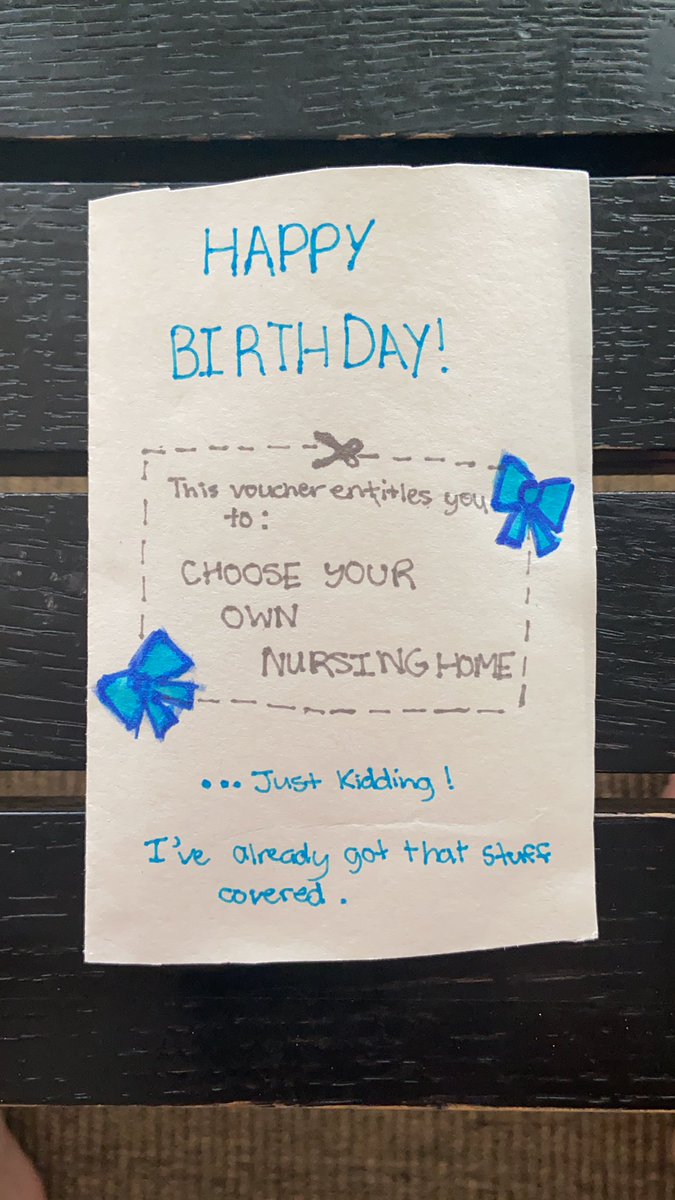 HAPPY
BIRTHDAY!
This voucher entitles you
to:
CHOOSE YOUR
OWN
NURSING HOME
...Just Kidding!
I've already got that stuff
covered.